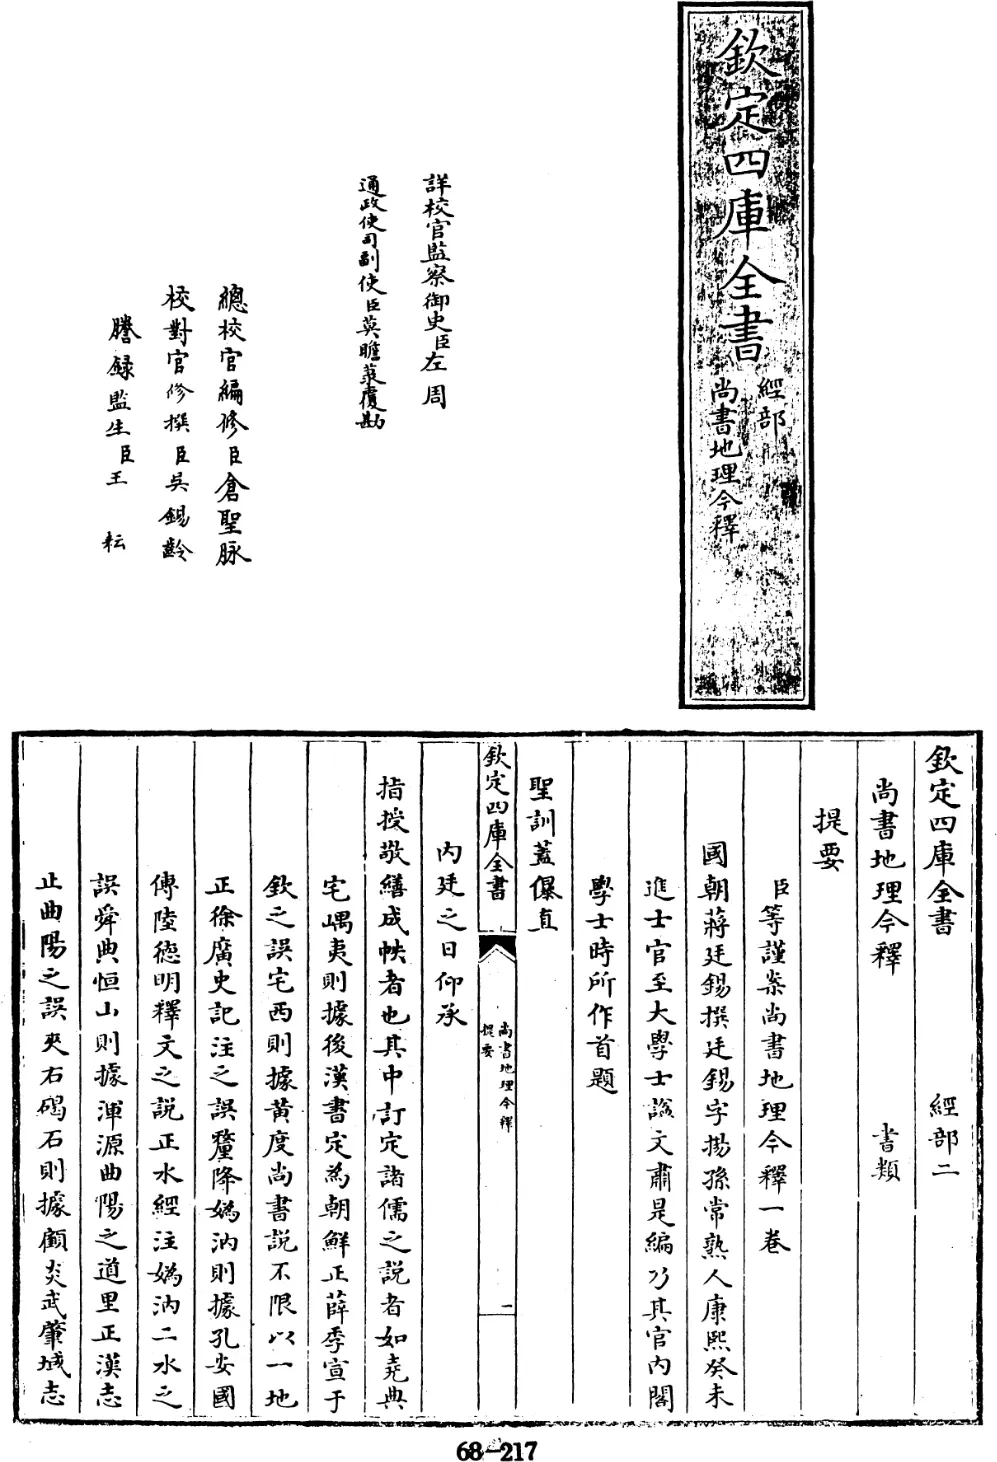 欽定四庫全書
經部
尚書地理今釋
詳校官監察御史臣左周
通政使司副使臣莫瞻菉覆勘
總校官編修臣倉聖脉
校對官修撰臣吳錫齡
謄錄監生臣王耘
欽定四庫全書 經部二
尚書地理今釋 書類
提要
臣等謹案尚書地理今釋一卷
國朝蔣廷錫撰廷錫字揚孫常熟人康熙癸未
進士官至大學士諡文肅是編乃其官內閣
學士時所作首題
聖訓蓋儤直
欽定四庫全書
尚書地理今釋
提要
一
內廷之日仰承
指授敬繕成帙者也其中訂定諸儒之説者如堯典
宅嵎夷則據後漢書定為朝鮮正薛季宣于
欽之誤宅西則據黃度尚書説不限以一地
正徐廣史記注之誤釐降媯汭則據孔安國
傳陸德明釋文之説正水經注媯汭二水之
誤舜典恒山則據渾源曲陽之道里正漢志
止曲陽之誤夾右碣石則據顧炎武肇域志
68-217